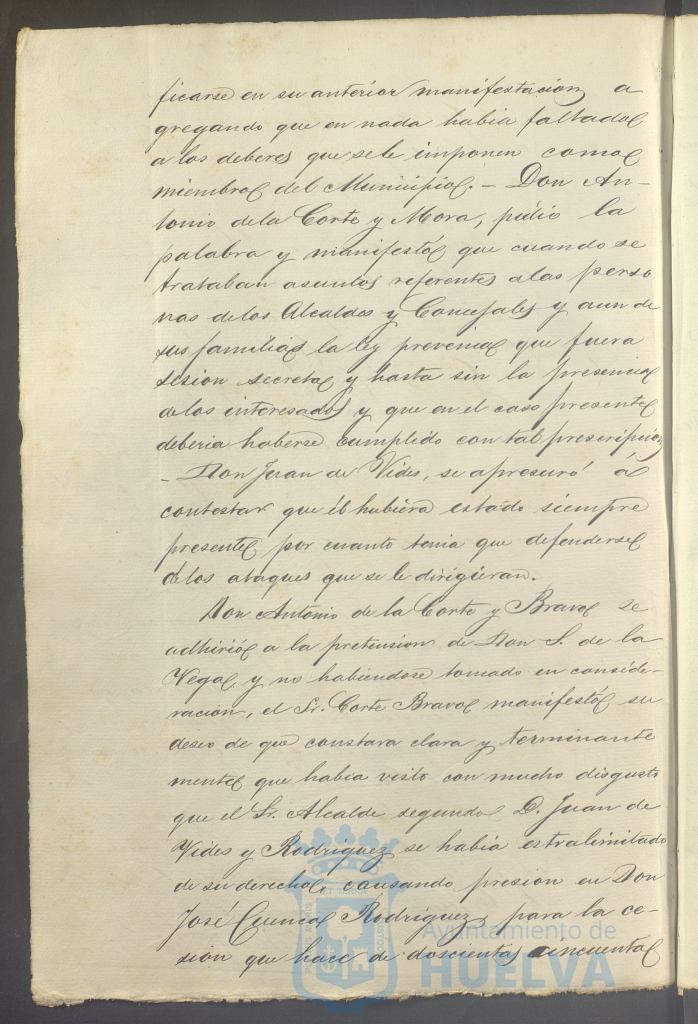 ficarse en su anterior manifestacion, a
gregando que en nada habia faltado
a los deberes que se le imponen como
miembro del Municipio. – Don An-
tonio de la Corte y Mora, pidió la
palabra y manifestó que cuando se
trataban asuntos referentes a las perso
nas de los Alcaldes y Concejales y aun de
sus familias la ley prevenia que fuera
sesion secreta y hasta sin la presencia
de los interesados y que en el caso presente
deberia haberse cumplido con tal prescripcion
– Don Juan de Vides, se apresuró á
contestar que él hubiera estado siempre
presente por cuanto tenia que defenderse
de los ataques que se le dirigieran.
Don Antonio de la Corte y Bravo se
adhirió a la pretension de Don S. de la
Vega, y no habiendose tomado en conside-
racion, el Sr. Corte Bravo manifestó su
deseo de que constara clara y terminante
mente que habia visto con mucho disgusto
que el Sr. Alcalde segundo D. Juan de
Vides y Rodriguez se habia estralimitado
de su derecho, causando presion en Don
José Cuenca Rodriguez, para la ce-
sion que hace de doscientas cincuenta
Ayuntamiento de
HUELVA